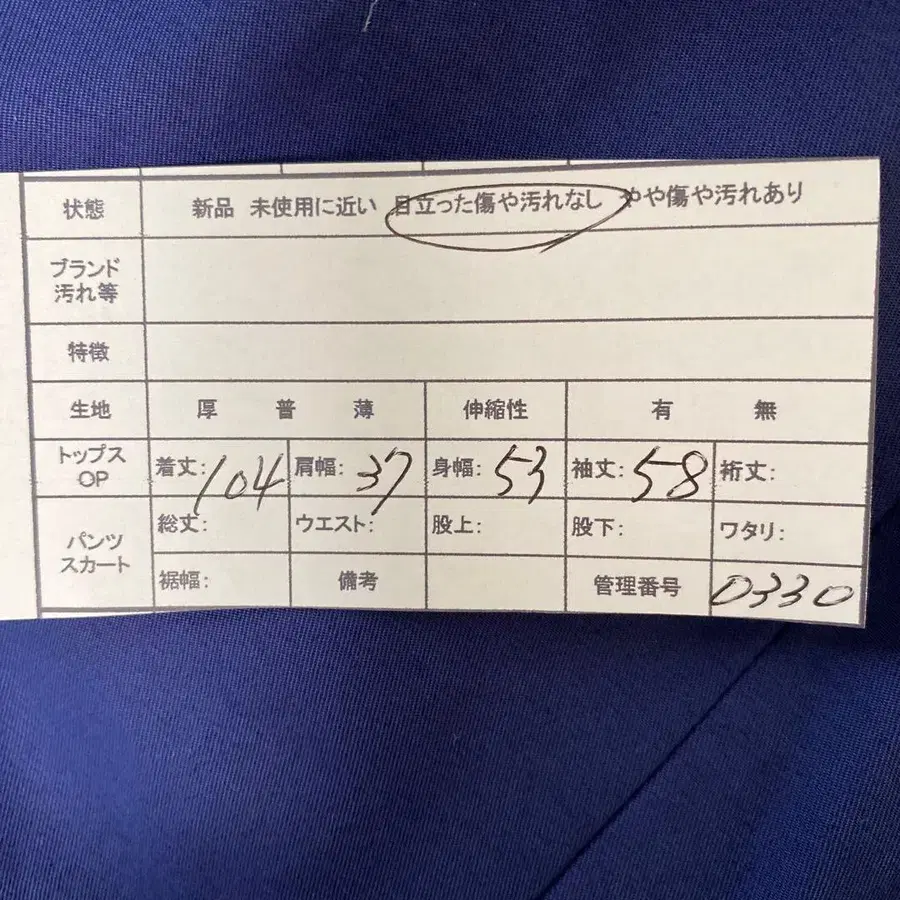 状態 新品 未使用に近い 目立った傷や汚れなし やや傷や汚れあり
ブランド
汚れ等
特徴
生地 厚 普 薄 伸縮性 有 無
トップス
OP
着丈:104 肩幅:37 身幅:53 袖丈:58 裄丈:
パンツ
スカート
総丈: ウエスト: 股上: 股下: ワタリ:
裾幅: 備考 管理番号 0330